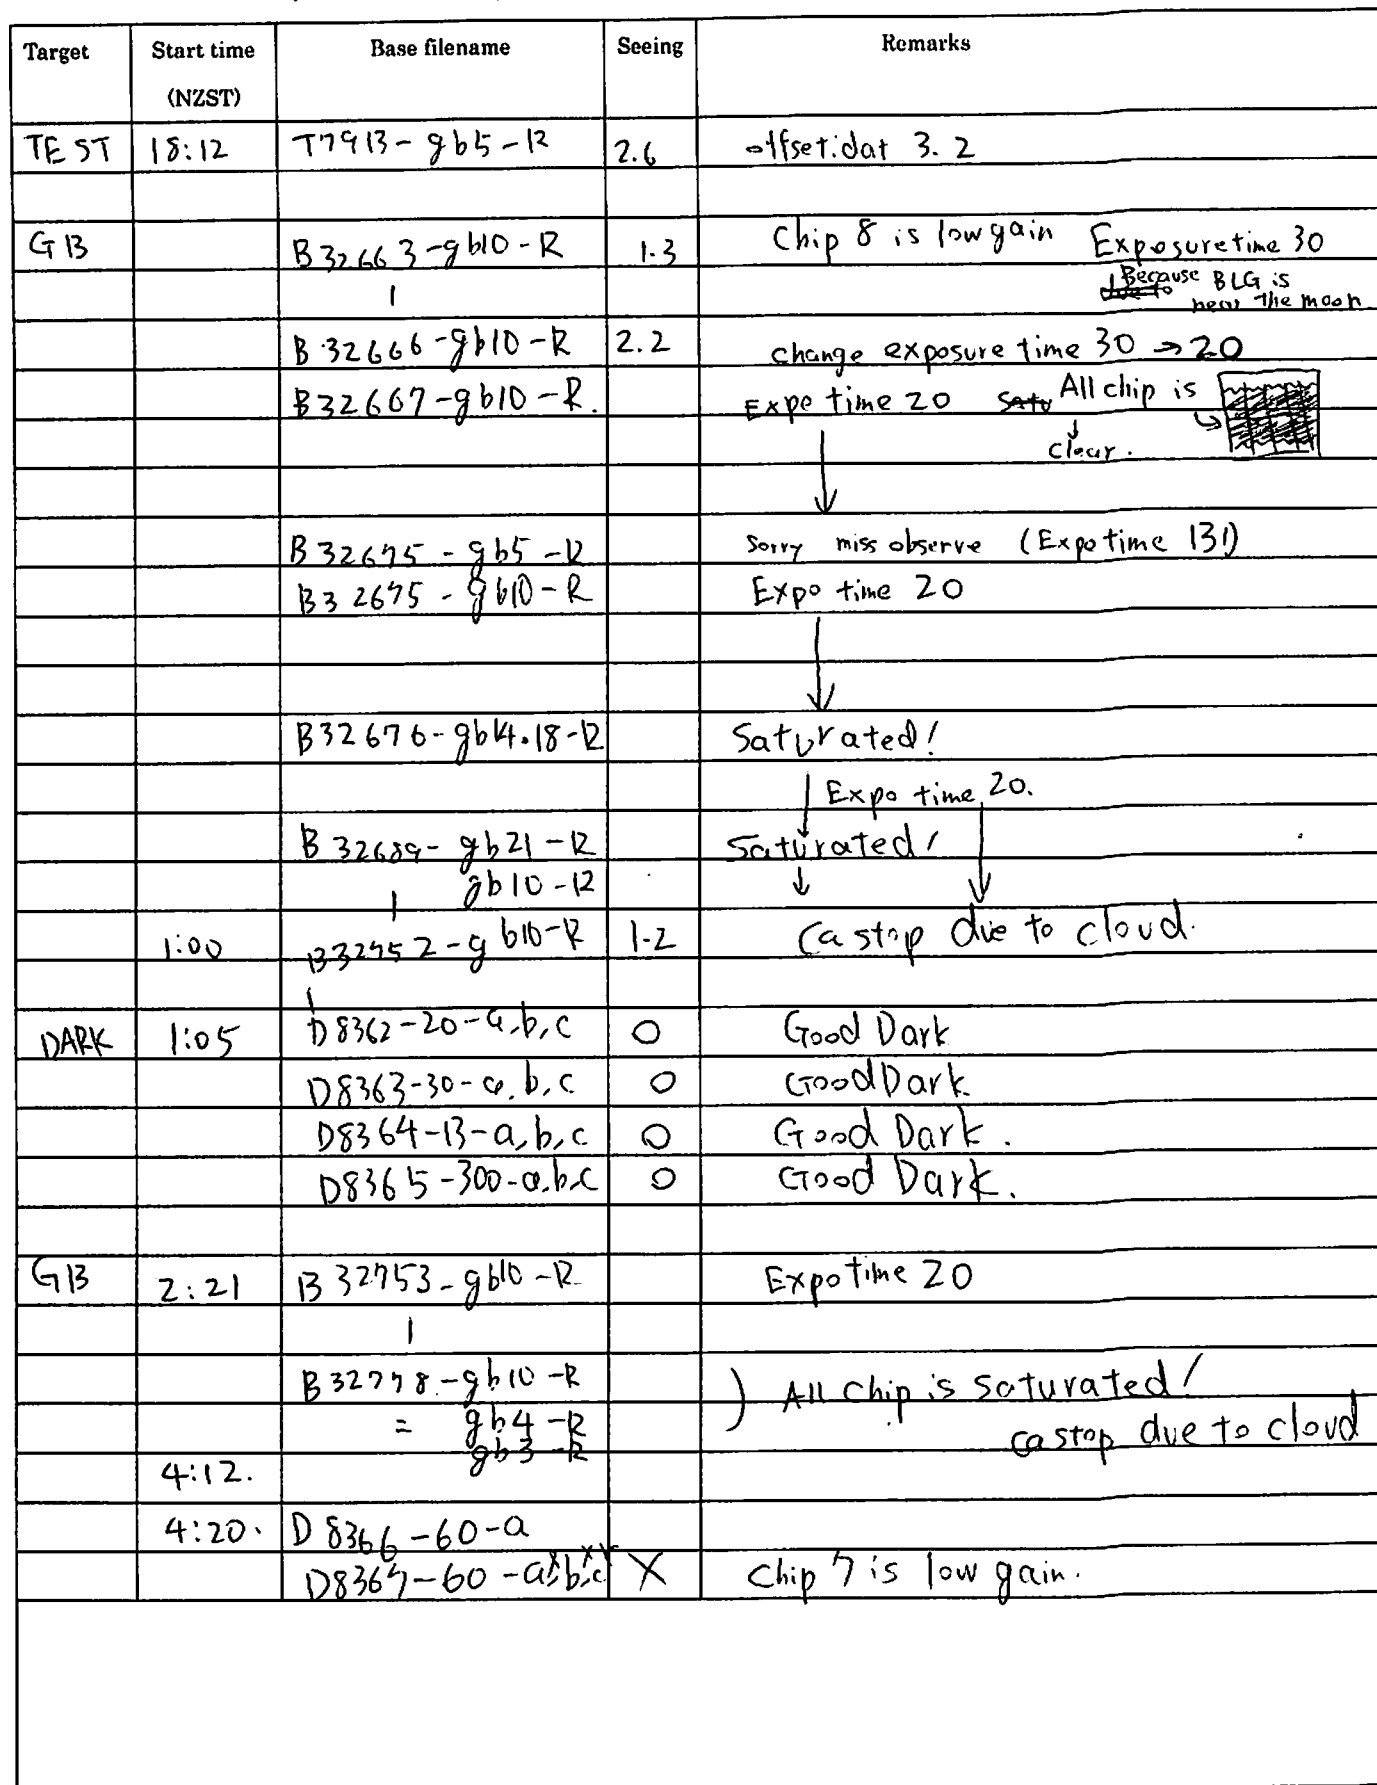 Target Start time (NZST) Base filename Seeing Remarks
TEST 18:12 T7913-gb5-R 2.6 offset.dat 3.2
GB B32663-gb10-R 1.3 Chip 8 is low gain Exposure time 30
Because BLG is
near the moon
B32666-gb10-R 2.2 change exposure time 30 → 20
B32667-gb10-R. Expo time 20 All chip is
↓
clear.
B32675-gb5-R Sorry miss observe (Expo time 131)
B32675-gb10-R Expo time 20
B32676-gb14.18-R Saturated!
Expo time 20.
B32689-gb21-R Saturated!
gb10-R
1:00 B32752-gb10-R 1.2 Ca stop due to cloud.
DARK 1:05 D8362-20-a,b,c O Good Dark
D8363-30-a,b,c O Good Dark
D8364-13-a,b,c O Good Dark.
D8365-300-a,b,c O Good Dark.
GB 2:21 B32753-gb10-R Expo time 20
B32778-gb10-R ) All chip is saturated!
= gb4-R ca stop due to cloud
gb3-R
4:12.
4:20. D8366-60-a
D8367-60-a,b,c X Chip 7 is low gain.